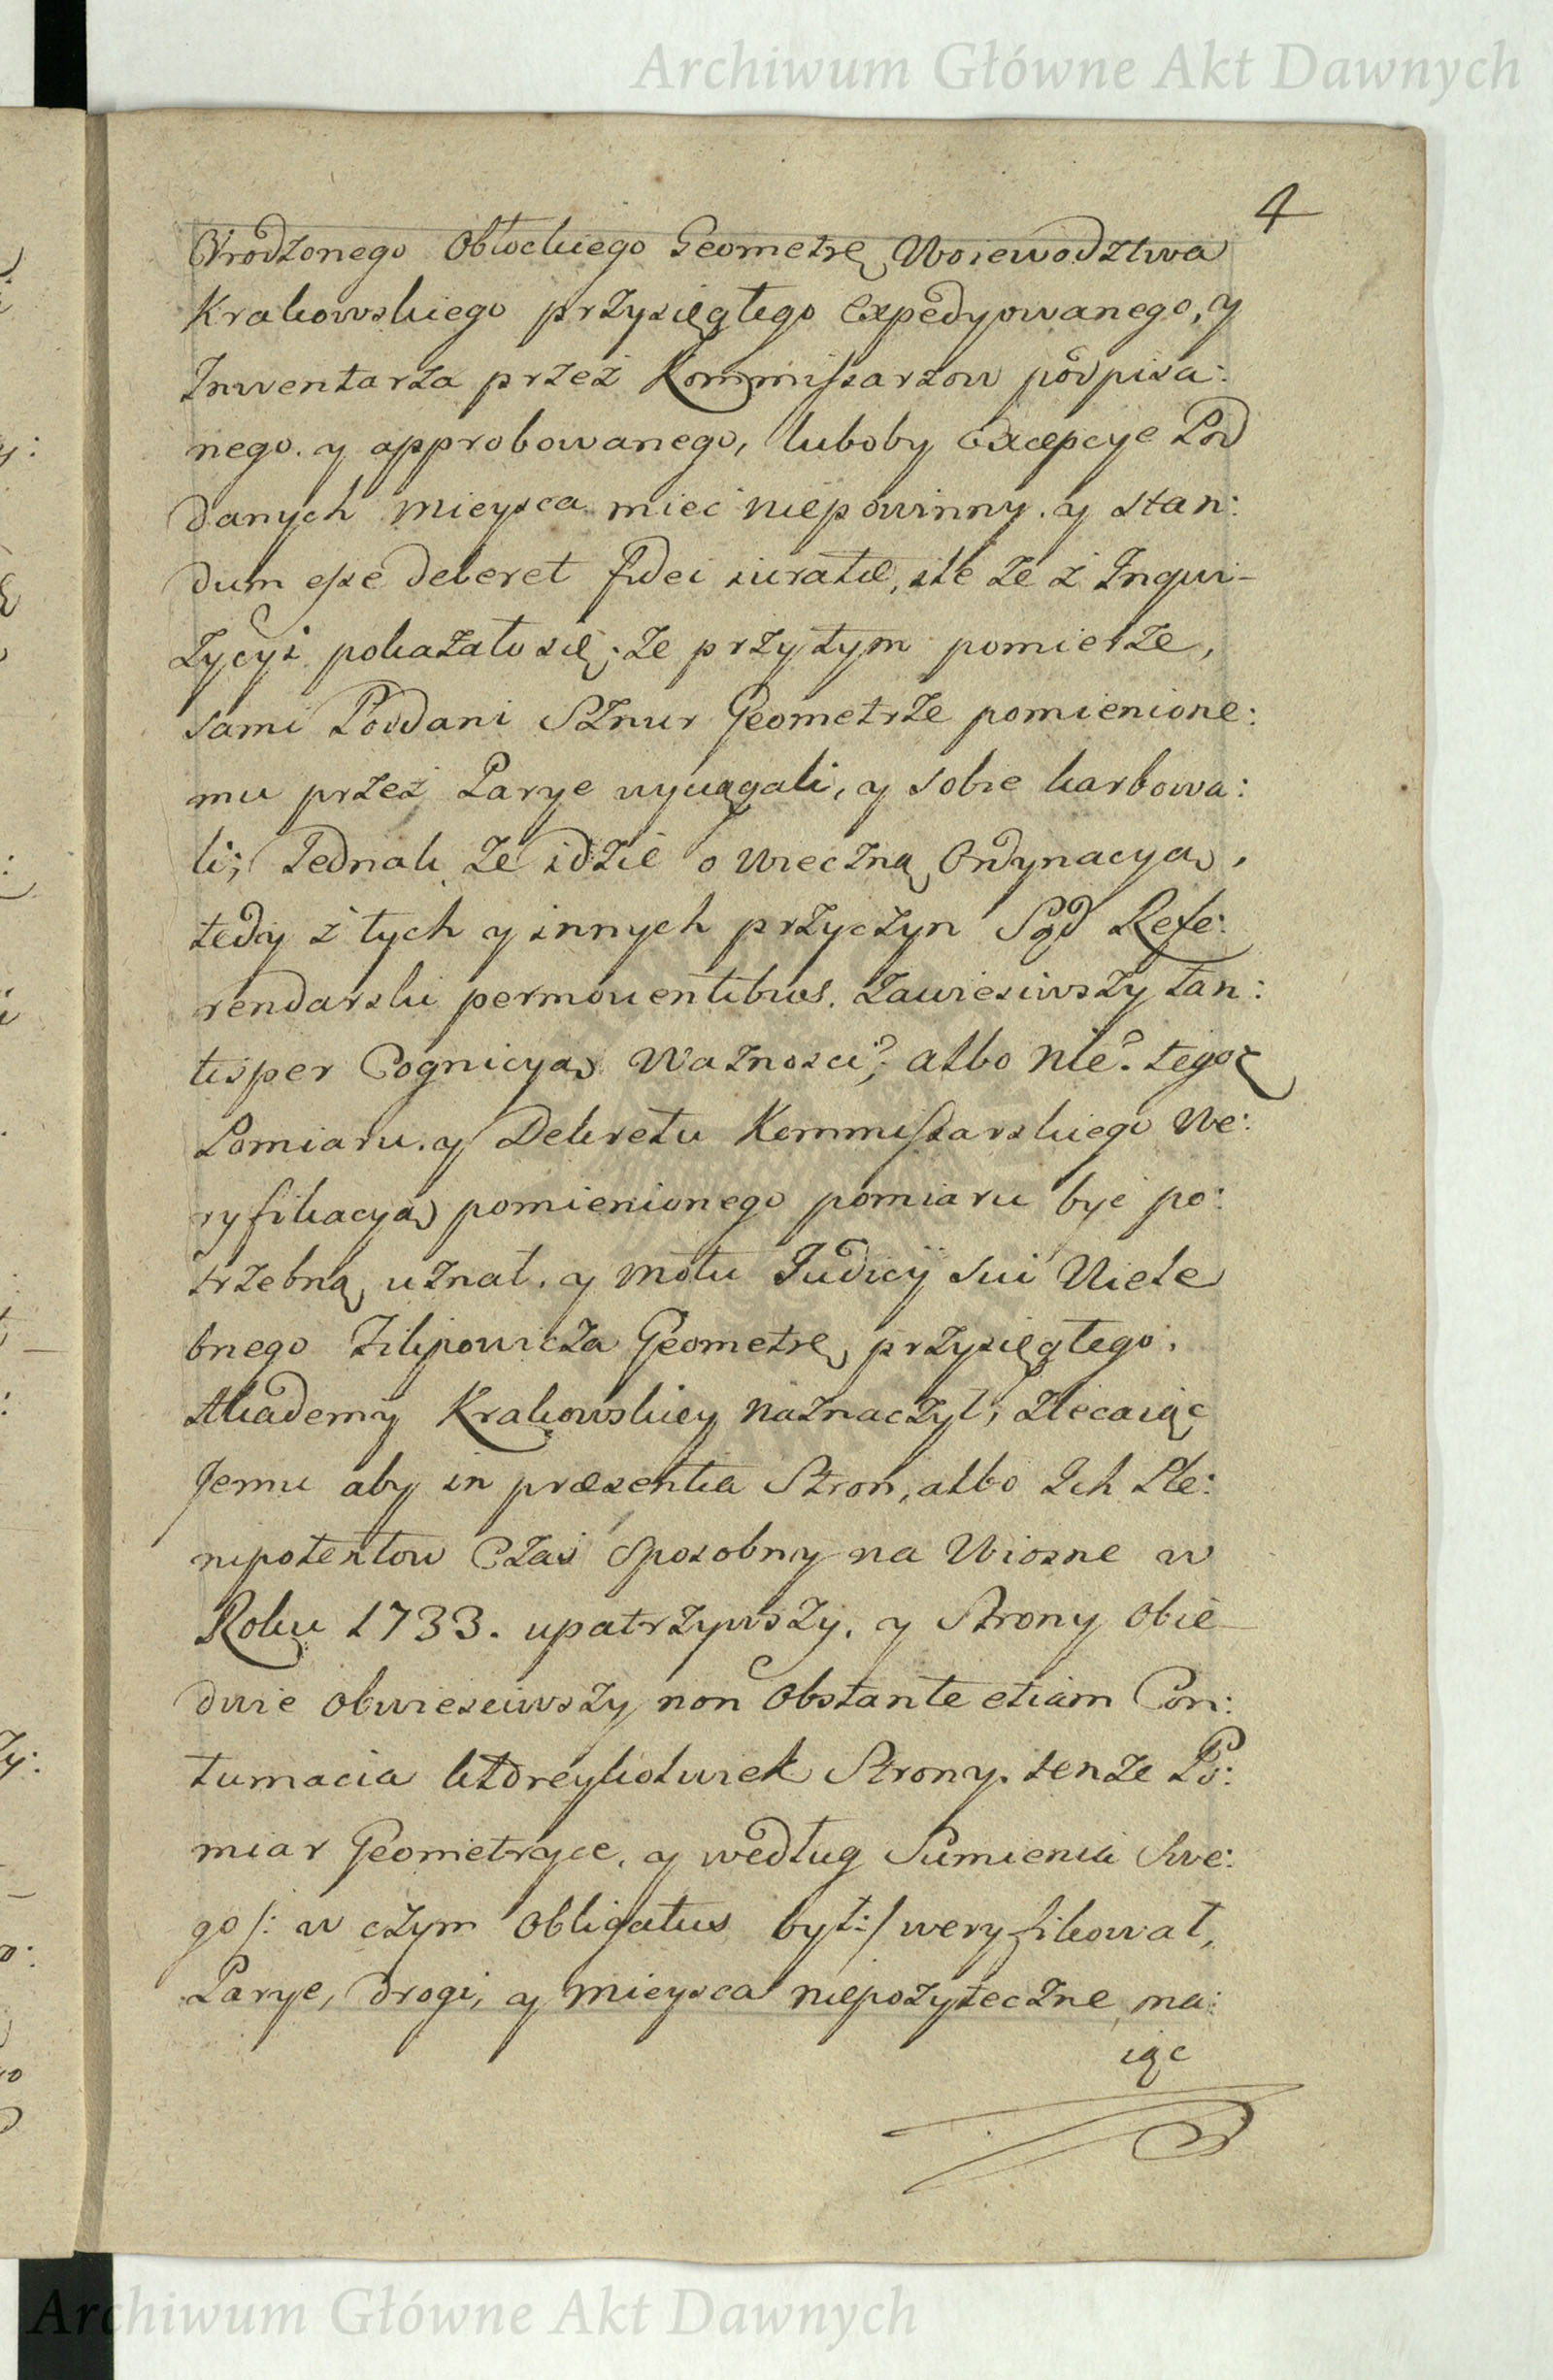 Archiwum Główne Akt Dawnych
4
Urodzonego Obłockiego Geometrę Woiewodztwa
Krakowskiego przysięgłego Expedyowanego, y
Inwentarza przez Kommissarzow podpisa:
nego. y approbowanego, luboby Excepcye Pod
danych mieysca miec niepowinny. y stan:
dum esse deberet fidei iuratæ, ile ze z Inqui-
zycyi pokazało się; ze przytym pomierze,
sami Poddani Sznur Geometrze pomienione:
mu przez Parye wyciągali, y sobie karbowa:
li; Jednak ze idzie o wieczną Ordynacyą,
tedy z tych y innych przyczyn Sąd Refe:
rendarski permouentibus. zawiesiwszy tan:
tisper Cognicyą Waznosci? albo nie? tegoz
Pomiaru. y Dekretu Kommissarskiego We:
ryfikacyą pomienionego pomiaru być po:
trzebną uznał. y motu Judicij sui Wiele
bnego Filipowicza Geometrę przysięgłego.
Akademy Krakowskiey naznaczył, zlecaiąc
Jemu aby in præsentia Stron, albo Ich Ple:
nipotentow Czas sposobny na Wiosne w
Roku 1733. upatrzywszy. y Strony obie
dwie obwiesciwszy non obstante etiam Con:
tumacia ktoreykolwiek Strony. tenze Po:
miar Geometryce, y według Sumienia swe:
go /: w czym obligatus był :/ weryfikował,
Parye, drogi, y mieysca niepozyteczne ma:
iąc
Archiwum Główne Akt Dawnych